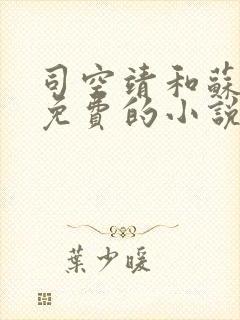 司空靖和蘇
免費的小說
葉少暖